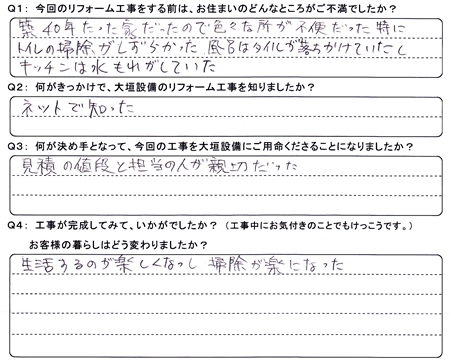 Q1: 今回のリフォーム工事をする前は、お住まいのどんなところがご不満でしたか?
築40年たった家だったので色々な所が不便だった 特に
トイレの掃除がしずらかった 風呂はタイルが落ちかけていたし
キッチンは水もれがしていた
Q2: 何がきっかけで、大垣設備のリフォーム工事を知りましたか?
ネットで知った
Q3: 何が決め手となって、今回の工事を大垣設備にご用命くださることになりましたか?
見積の値段と担当の人が親切だった
Q4: 工事が完成してみて、いかがでしたか? (工事中にお気付きのことでもけっこうです。)
お客様の暮らしはどう変わりましたか?
生活するのが楽しくなっし 掃除が楽になった